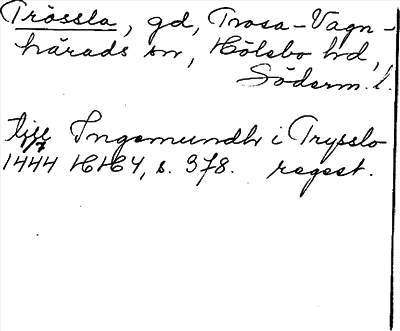 Trössla, gd, Trosa-Vagn-
härads sn, Hölebo hd,
Söderm. l.
Ingemundh i Trysslo
1444 HH4, s. 378. regest.